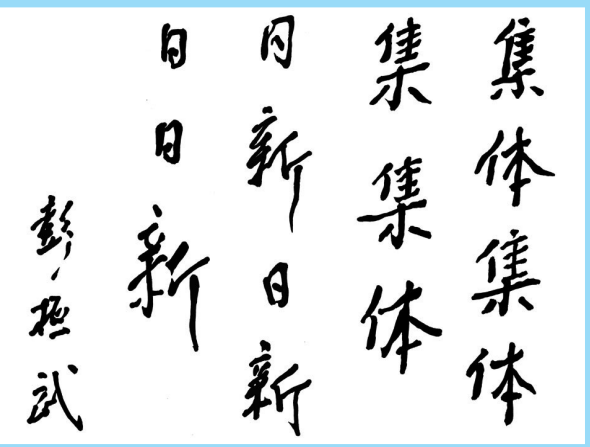 集体集体
集集体
日新日新
日日新
彭桓武